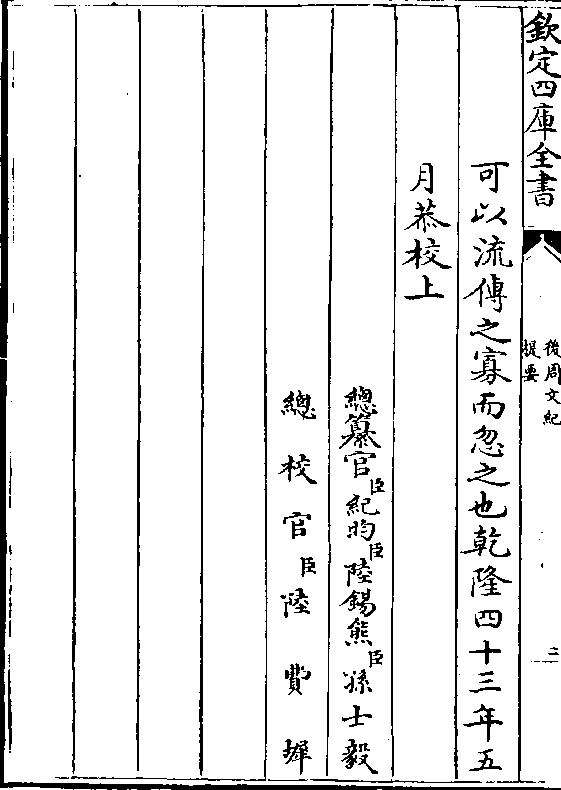 欽定四庫全書
後周文紀
提要
二
可以流傳之寡而忽之也乾隆四十三年五
月恭校上
總纂官臣紀昀臣陸錫熊臣孫士毅
總校官臣陸費墀